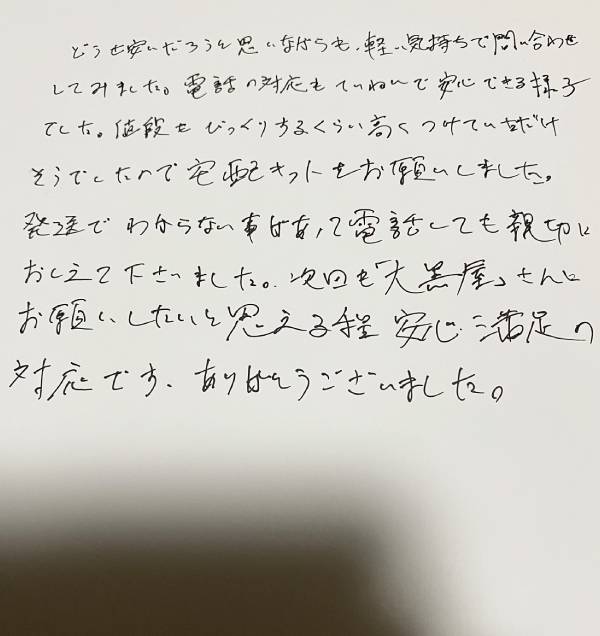 どうせ安いだろうと思いながらも、軽い気持ちで問い合わせ
してみました。電話の対応もていねいで安心できる様子
でした。値段もびっくりするくらい高くつけていただけ
そうでしたので宅配キットをお願いしました。
発送でわからない事があって電話しても親切に
おしえて下さいました。次回も「大黒屋」さんに
お願いしたいと思える程安心、満足の
対応です、ありがとうございました。